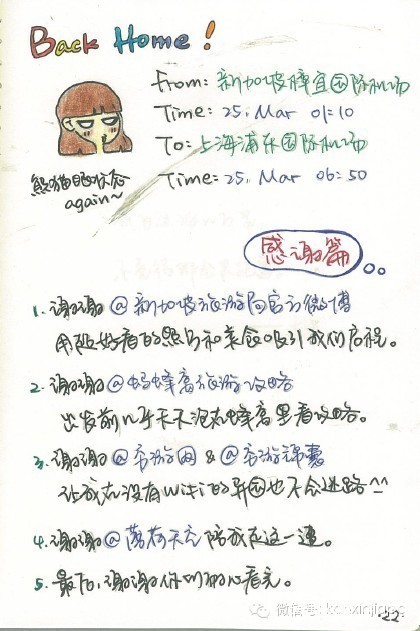 Back Home!
From: 新加坡樟宜国际机场
Time: 25. Mar 01:10
To: 上海浦东国际机场
Time: 25. Mar 06:50
熊猫眼状态
again~
感谢篇
1. 谢谢@新加坡旅游局官方微博
用那么好看的照片和美食吸引我们启程。
2. 谢谢@蚂蜂窝旅游攻略
出发前几乎天天泡在蜂窝里看攻略。
3. 谢谢@穷游网 & @穷游锦囊
让我在没有WiFi的异国也不会迷路^^
4. 谢谢@ 陪我走这一遭。
5. 最后,谢谢你们的耐心看完。
微信号: kanxinjiapo
·22·